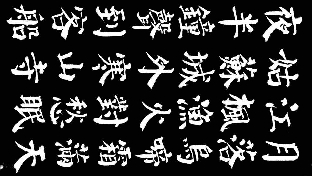 月落烏啼霜滿天
江楓漁火對愁眠
姑蘇城外寒山寺
夜半鐘聲到客船